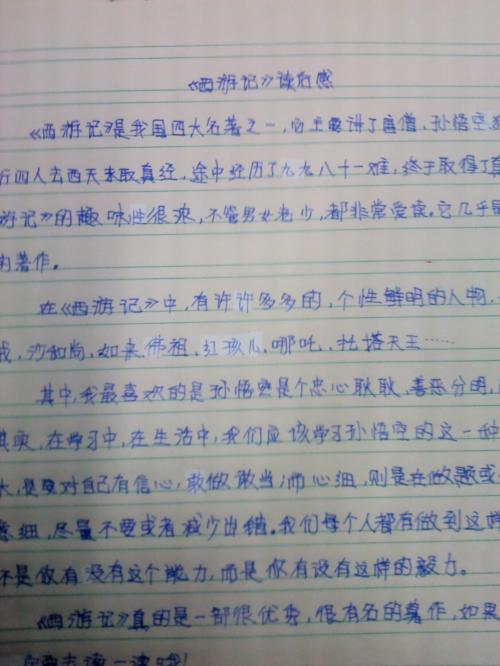 《西游记》读后感
《西游记》是我国四大名著之一,它主要讲了唐僧、孙悟空
行四人去西天来取真经,途中经历了九九八十一难,终于取得了真
游记》的趣味性很浓,不管男女老少,都非常爱读。它几乎
的著作。
在《西游记》中,有许许多多的,个性鲜明的人物,
戒,沙和尚,如来佛祖,红孩儿,哪吒,托塔天王……
其中,我最喜欢的是孙悟空是个忠心耿耿、善恶分明,
其实,在学习中,在生活中,我们应该学习孙悟空的这一种
大,是要对自己有信心,敢做敢当;而心细,则是在做题或
意细,尽量不要或者减少出错。我们每个人都有做到这样
不是你有没有这个能力,而是你有没有这样的毅力。
《西游记》真的是一部很优秀,很有名的著作,如果
去读一读哦!